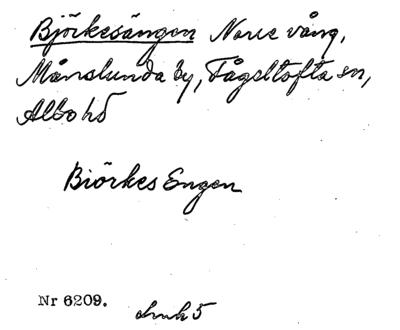 Björkesängen Norre vång,
Månslunda by, Fågeltofta sn,
Albo hd
Biörkes Engen
Nr 6209.